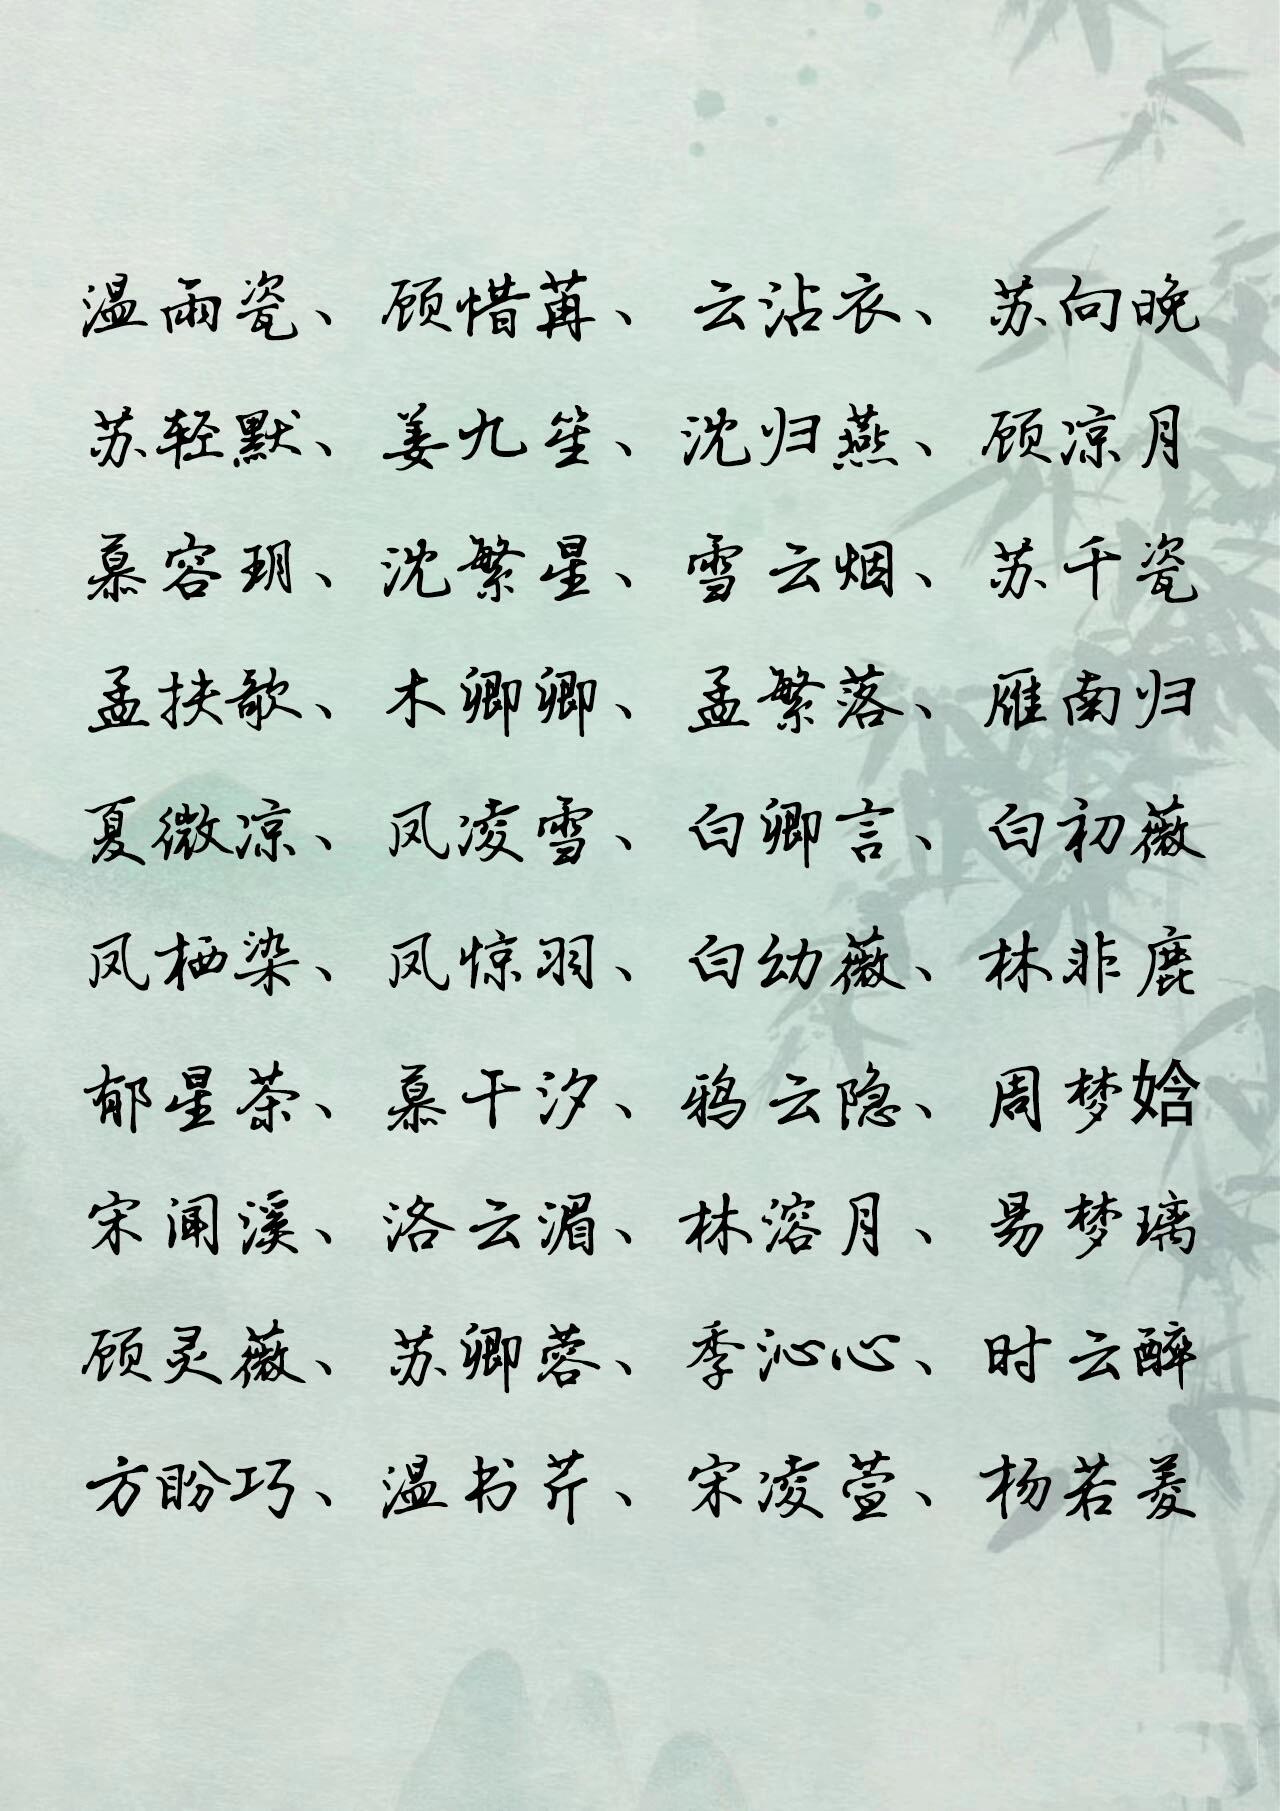 温雨瓷、顾惜苒、云沾衣、苏向晚
苏轻默、姜九笙、沈归燕、顾凉月
慕容玥、沈繁星、雪云烟、苏千瓷
孟扶歌、木卿卿、孟繁落、雁南归
夏微凉、凤凌雪、白卿言、白初薇
凤栖染、凤惊羽、白幼薇、林非鹿
郁星茶、慕千汐、鸦云隐、周梦娢
宋闻溪、洛云湄、林溶月、易梦璃
顾灵薇、苏卿蓉、季沁心、时云醉
方盼巧、温书芹、宋凌萱、杨若菱